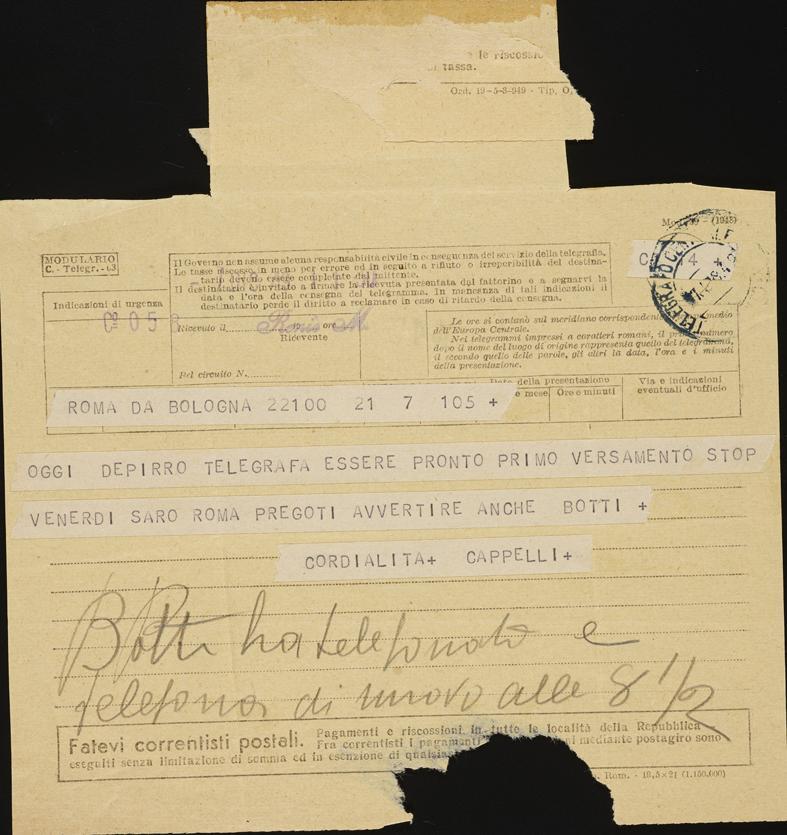 le riscossio
tassa.
Ord. 19-5-3-949 - Tip.
(1948)
MODULARIO
C. - Telegr. - 63
Indicazioni di urgenza
Il Governo non assume alcuna responsabilità civile in conseguenza del servizio della telegrafia.
Le tasse riscosse in meno per errore ed in seguito a rifiuto o irreperibilità del destina-
tario devono essere completate dal mittente.
Il destinatario è invitato a firmare la ricevuta presentata dal fattorino e a segnarvi la
data e l'ora della consegna del telegramma. In mancanza di tali indicazioni il
destinatario perde il diritto a reclamare in caso di ritardo della consegna.
C 4 +
TELEGRAFO
058
Ricevuto il ore
Ricevente
Pel circuito N.
Le ore si contano sul meridiano corrispondente medio
dell'Europa Centrale.
Nei telegrammi impressi a caratteri romani, il primo numero
dopo il nome del luogo di origine rappresenta quello del telegramma,
il secondo quello delle parole, gli altri la data, l'ora e i minuti
della presentazione.
Data della presentazione
e mese Ore e minuti
Via e indicazioni
eventuali d'ufficio
ROMA DA BOLOGNA 22100 21 7 105 +
OGGI DEPIRRO TELEGRAFA ESSERE PRONTO PRIMO VERSAMENTO STOP
VENERDI SARO ROMA PREGOTI AVVERTIRE ANCHE BOTTI +
CORDIALITA+ CAPPELLI+
Botti ha telefonato e
telefona di nuovo alle 8 1/2
Fatevi correntisti postali.
Pagamenti e riscossioni in tutte le località della Repubblica
Fra correntisti i pagamenti mediante postagiro sono
eseguiti senza limitazione di somma ed in esenzione di qualsiasi
Rom. - 18,5×21 (1.150.000)